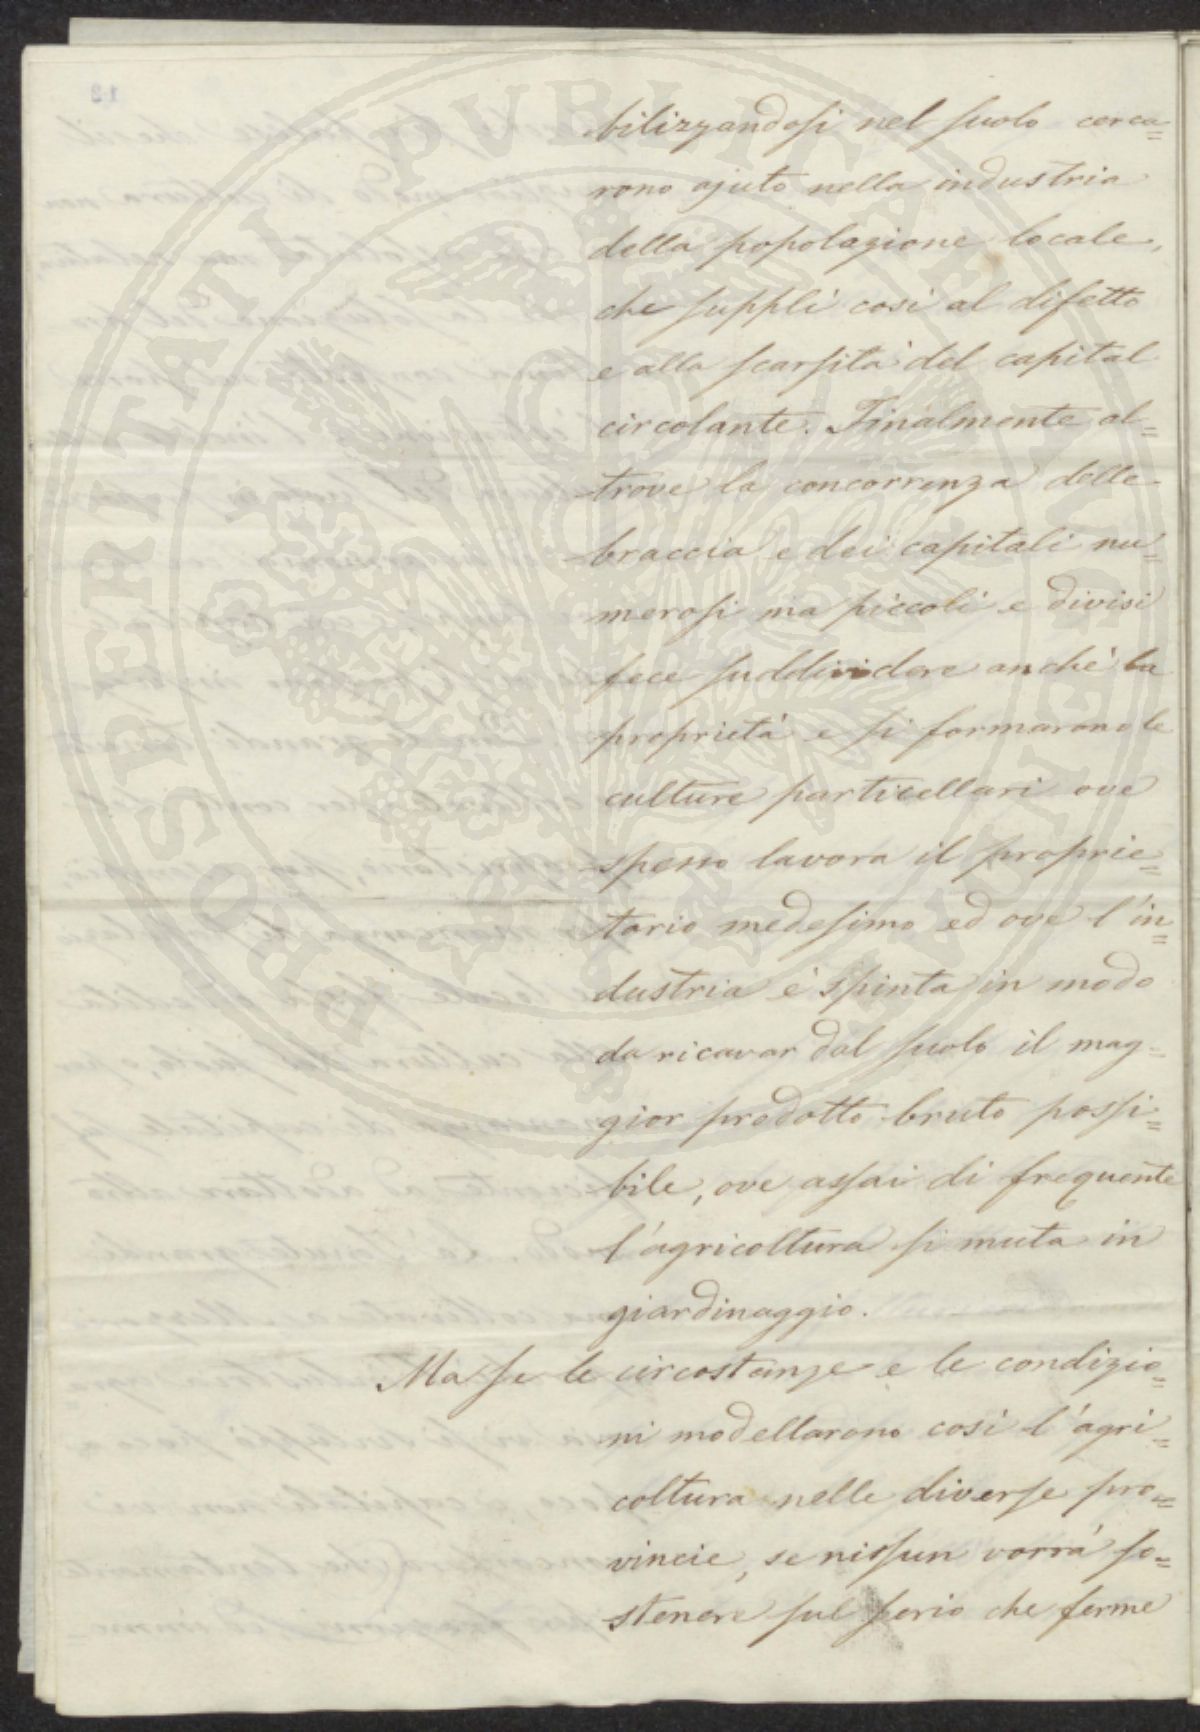 bilizzandosi nel suolo cerca=
rono ajuto nella industria
della popolazione locale,
che supplì così al difetto
e alla scarsità del capital
circolante. Finalmente al=
trove la concorrenza delle
braccia e dei capitali nu=
merosi ma piccoli e divisi
fece suddividere anche la
proprietà e si formarono le
culture particellari ove
spesso lavora il proprie=
tario medesimo ed ove l'in=
dustria è spinta in modo
da ricavar dal suolo il mag=
gior prodotto bruto possi=
bile, ove assai di frequente
l'agricoltura si muta in
giardinaggio.
Ma se le circostanze e le condizio=
ni modellarono così l'agri=
coltura nelle diverse pro=
vincie, se nissun vorrà so=
stenere sul serio che ferme
PROSPERITATI PVBLICAE AVGENDAE